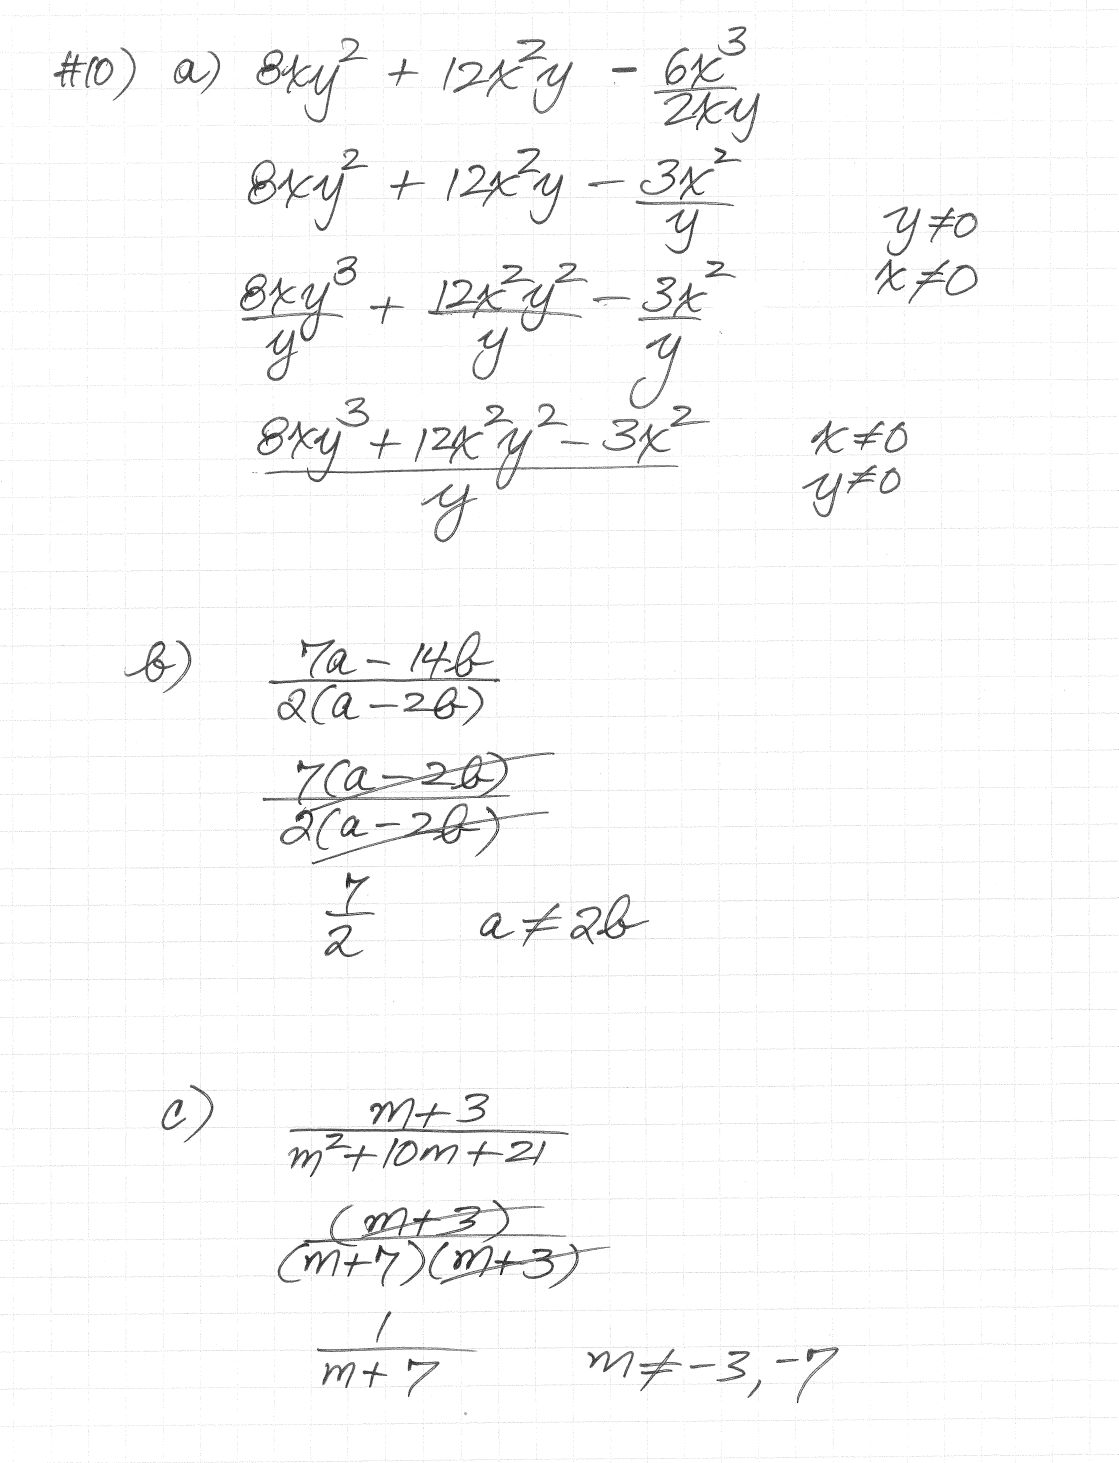 #10) a) 8xy² + 12x²y - 6x³/2xy
8xy² + 12x²y - 3x²/y
y≠0
x≠0
8xy³/y + 12x²y²/y - 3x²/y
(8xy³ + 12x²y² - 3x²)/y
x≠0
y≠0
b) (7a - 14b)/2(a - 2b)
7(a - 2b)/2(a - 2b)
7/2 a ≠ 2b
c) (m + 3)/(m² + 10m + 21)
(m + 3)/(m + 7)(m + 3)
1/(m + 7) m ≠ -3, -7